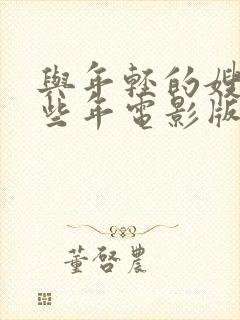 與年輕的嫂
些年電影版
董啓農